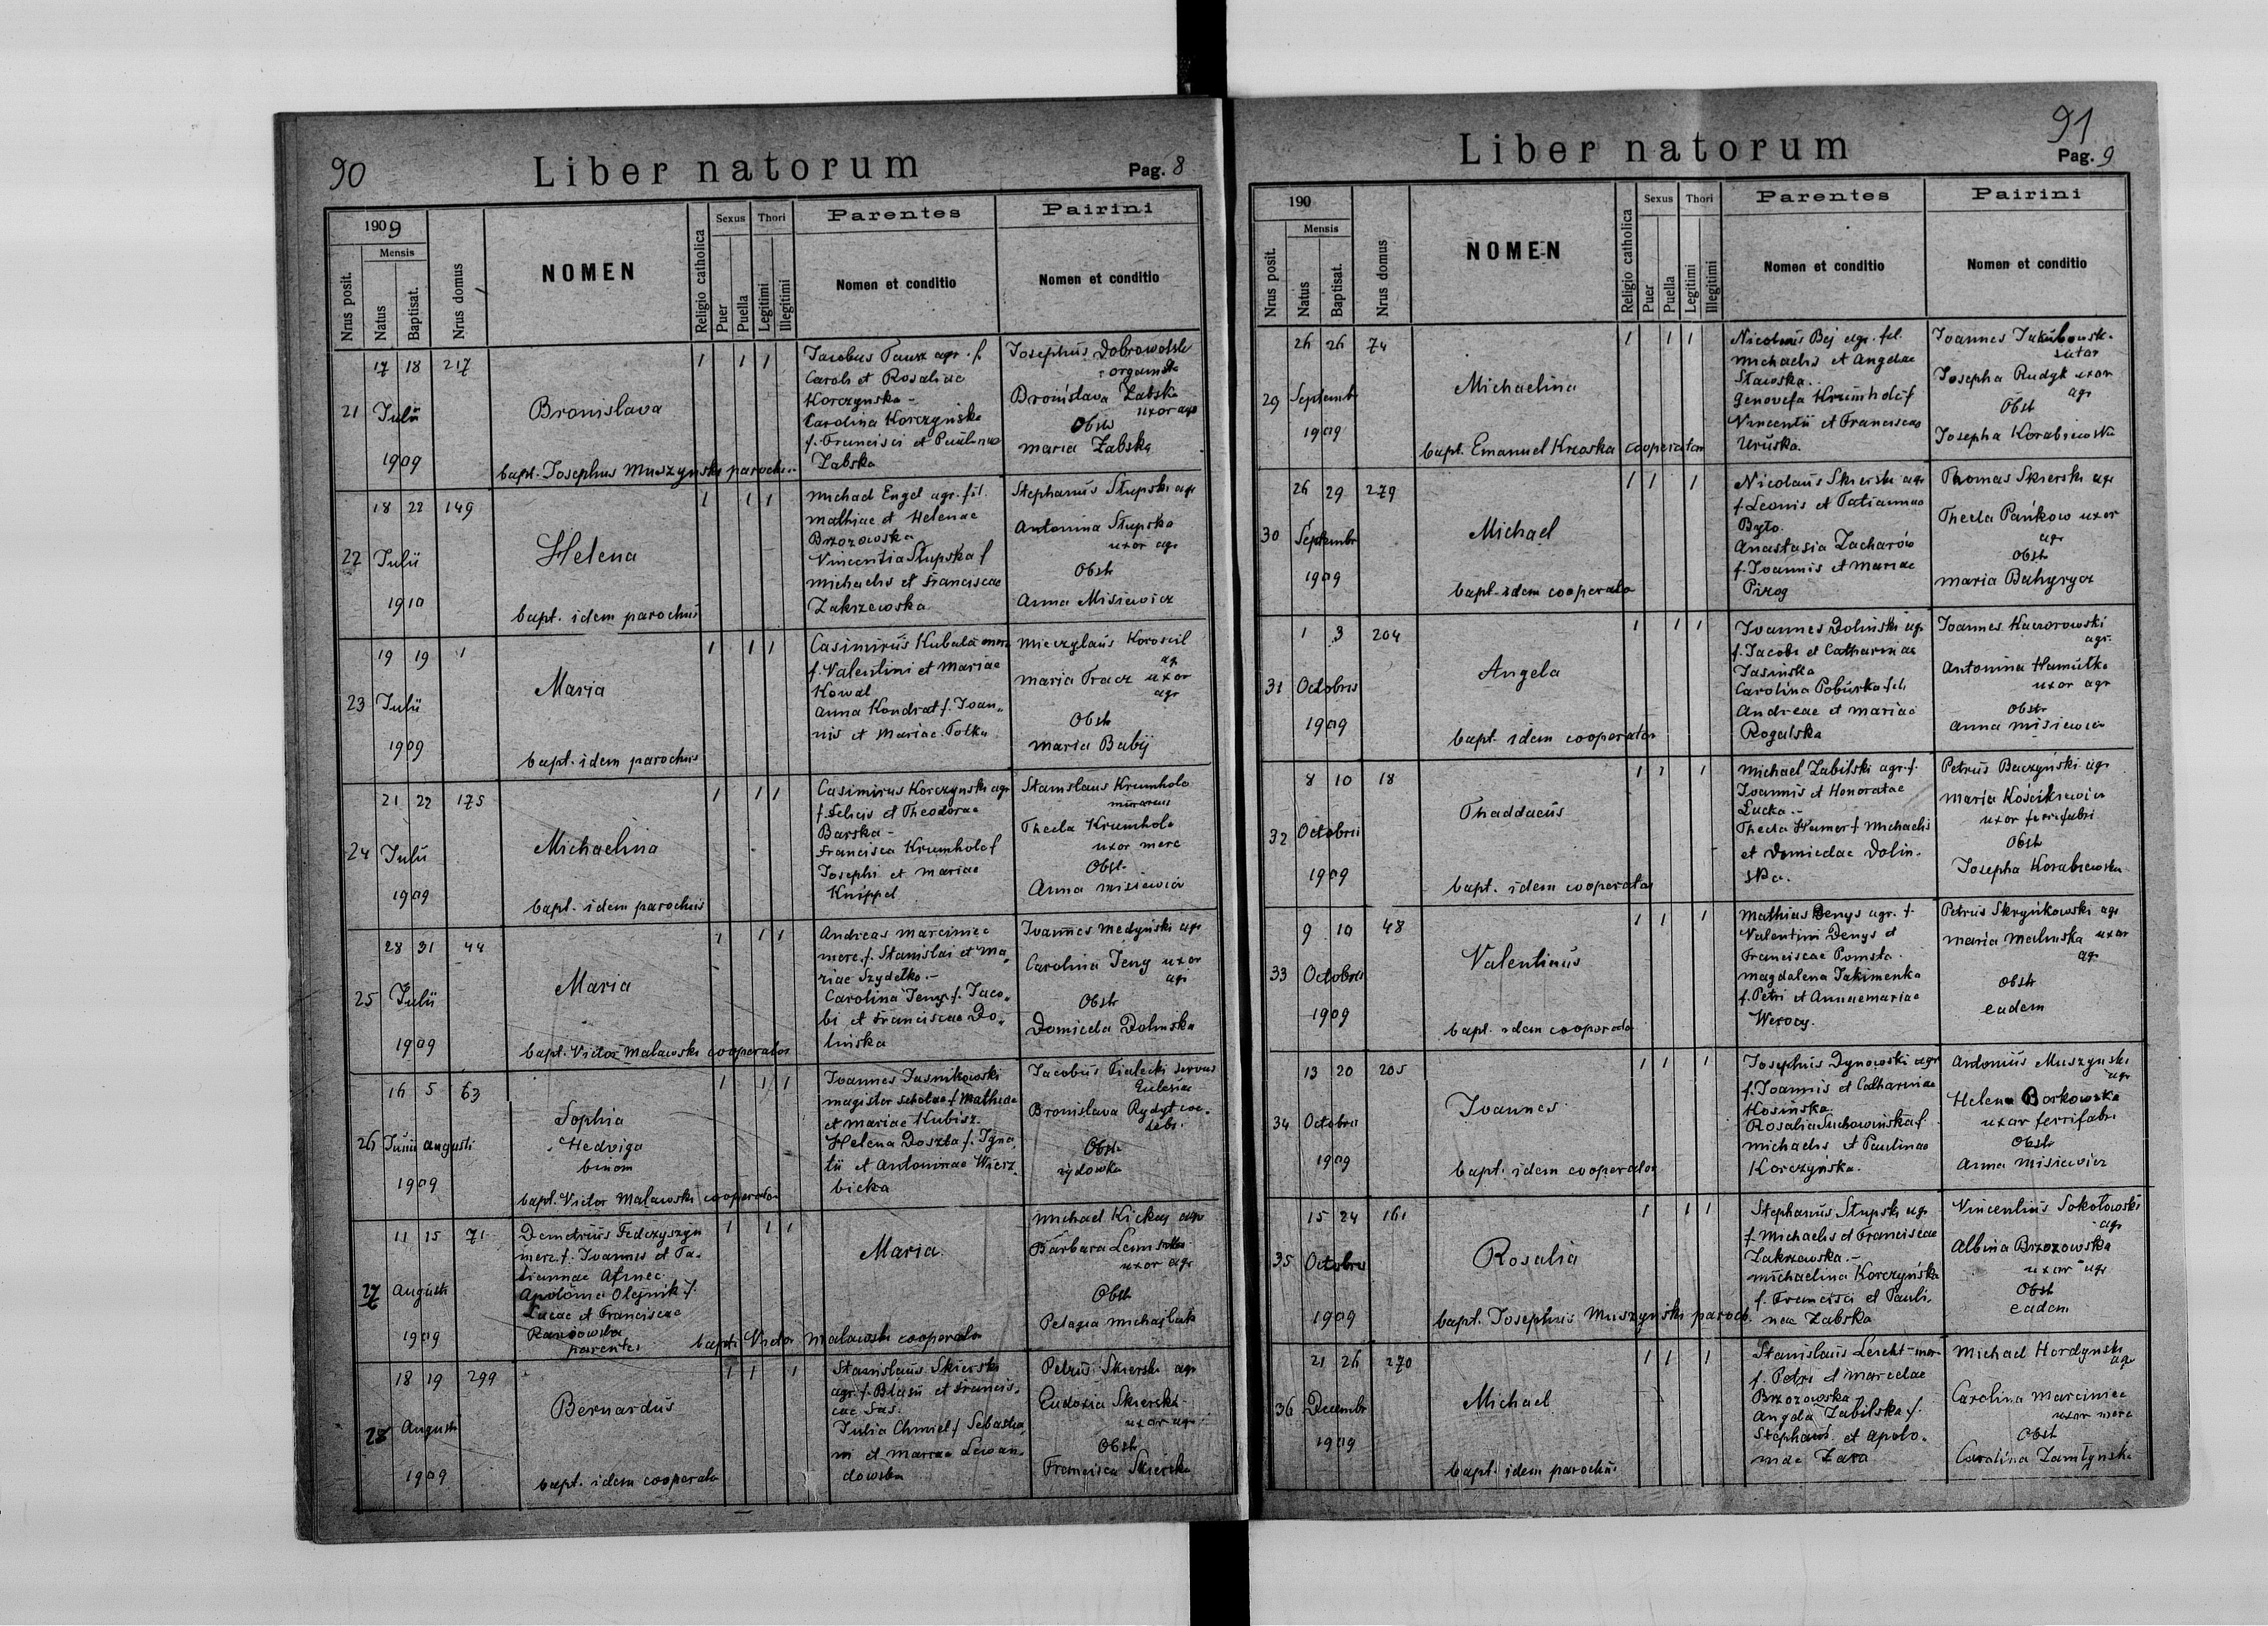 90
Liber natorum
Pag. 8
1909
Mensis
Nrus posit.
Natus
Baptisat.
Nrus domus
NOMEN
Religio catholica
Sexus
Puer
Puella
Thori
Legitimi
Illegitimi
Parentes
Nomen et conditio
Pairini
Nomen et conditio
21
17 18 217
Julii
1909
Bronislava
bapt. Josephus Muszynski parochus
1 1 1
Jacobus Faux agr. f.
Caroli et Rosaliae
Korczynska -
Carolina Korczyńska
f. Francisci et Paulinae
Zabska
Josephus Dobrowolski
organista
Bronislava Zabska
uxor agr
Obst
Maria Zabska
22
18 22 149
Julii
1910
Helena
bapt. idem parochus
1 1 1
Michael Engel agr. fil.
Mathiae et Helenae
Brzozowska
Vincentia Słupska f
Michaelis et Franciscae
Zakrzewska
Stephanus Słupski agr
Antonina Słupska
uxor agr
Obst
Anna Misiewicz
23
19 19 1
Julii
1909
Maria
bapt. idem parochus
1 1 1
Casimirus Kubala merc
f. Valentini et Mariae
Kowal
Anna Kondrat f. Joan„
nis et Mariae Tolka
Mieczylaus Korościl
agr
Maria Tracz uxor
agr
Obst
Maria Babij
24
21 22 175
Julii
1909
Michaelina
bapt. idem parochus
1 1 1
Casimirus Korczynski agr
f. Felicis et Theodorae
Barska -
Francisca Krumholc f
Josephi et Mariae
Knippel
Stanislaus Krumholc
murarius
Thecla Krumholc
uxor merc
Obst.
Anna Misiewicz
25
28 31 44
Julii
1909
Maria
bapt. Victor Malawski cooperator
1 1 1
Andreas Marciniec
merc. f. Stanislai et Ma„
riae Szydełko. -
Carolina Jeny f. Jaco„
bi et Franciscae Do„
linska
Joannes Medyński agr
Carolina Jeny uxor
agr
Obst
Domicela Dolinska
26
16 5 63
Junii Augusti
1909
Sophia
Hedviga
binom
bapt. Victor Malawski cooperator
1 1 1
Joannes Jasnikowski
magister scholae f. Mathiae
et Mariae Kubisz
Helena Doszla f. Igna
tii et Antoninae Wierz„
bicka
Jacobus Fialecki servus
Eclesiae
Bronislava Rydyt coe„
lebs.
Obst
rydowka
27
11 15 71
Augusti
1909
Demetrius Fedczyszyn
merc. f. Joannis et Ta„
tiannae
Apolonia Olejnik f.
Lucae et Franciscae
parentes
bapt. Victor Malawski cooperator
1 1 1
Maria.
Michael Kickaj agr
Barbara
uxor agr
Obst
Pelagia Michajluk
28
18 19 299
Augusti
1909
Bernardus
bapt. idem cooperator
1 1 1
Stanislaus Skierski
agr. f. Blasii et Francis„
cae Sas.
Julia Chmiel f. Sebastia„
ni et Mariae Lewan„
dowska
Petrus Skierski agr
Eudoxia Skierska
uxor agr
Obst
Francisca Skierska
91
Liber natorum
Pag. 9
190
Mensis
Nrus posit.
Natus
Baptisat.
Nrus domus
NOMEN
Religio catholica
Sexus
Puer
Puella
Thori
Legitimi
Illegitimi
Parentes
Nomen et conditio
Pairini
Nomen et conditio
29
26 26 74
Septembr
1909
Michaelina
bapt. Emanuel Krzaska cooperator
1 1 1
Nicolaus Bej agr. fil.
Michaelis et Angelae
Stawska.
Genovefa Krumholc f
Vincentii et Franciscae
Uruska.
Joannes Jakubowsk.
sutor
Josepha Rudyk uxor
agr
Obst
Josepha Korabiewska
30
26 29 279
Septembr
1909
Michael
bapt. idem cooperator
1 1 1
Nicolaus Skierski agr
f. Leonis et Tatiannae
Było.
Anastasia Zacharów
f. Joannis et Mariae
Pirog
Thomas Skierski agr
Thecla Pańkow uxor
agr
Obst
Maria Bahyrycz
31
1 3 204
Octobris
1909
Angela
bapt. idem cooperator
1 1 1
Joannes Doliński agr
f. Jacobi et Catharinae
Jasinska
Carolina Poburka fil.
Andreae et Mariae
Rogalska
Joannes Kaczorowski
agr.
Antonina Hamulka
uxor agr
Obst
Anna Misiewicz
32
8 10 18
Octobris
1909
Thaddaeus
bapt. idem cooperator
1 1 1
Michael Zabilski agr. f.
Joannis et Honoratae
Lucka. -
Thecla Humer f. Michaelis
et Domicelae Dolin„
ska.
Petrus Baczyński agr
Maria Kościkiewicz
uxor ferrifabri
Obst
Josepha Korabiewska
33
9 10 48
Octobris
1909
Valentinus
bapt. idem cooperator
1 1 1
Mathias Denys agr. f.
Valentini Denys et
Franciscae Pomsta.
Magdalena Jakimenka
f. Petri et Annaemariae
Werocy.
Petrus Skryńkowski agr
Maria Malinska uxor
agr
Obst
eadem
34
13 20 205
Octobris
1909
Joannes
bapt. idem cooperator
1 1 1
Josephus Dynowski agr
f. Joannis et Catharinae
Kosińska.
Rosalia Suchowinska f.
Michaelis et Paulinae
Korczyńska.
Antonius Muszynski
agr
Helena Borkowska
uxor ferrifabri
Obst
Anna Misiewicz
35
15 24 161
Octobris
1909
Rosalia
bapt. Josephus Muszyński paroch.
1 1 1
Stephanus Słupski agr
f. Michaelis et Franciscae
Zakrzewska. -
Michaelina Korczyńska
f. Francisci et Pauli„
nae Zabska
Vincentius Sokołowski
agr
Albina Brzozowska
uxor agr
Obst
eadem
36
21 26 270
Decembr
1909
Michael
bapt. idem parochus
1 1 1
Stanislaus Leicht - merc
f. Petri et Marcelae
Brzozowska
Angela Zabilska f.
Stephani et Apolo„
niae Zara
Michael Hordynski
agr
Carolina Marciniec
uxor merc
Obst
Carolina Zamłynska